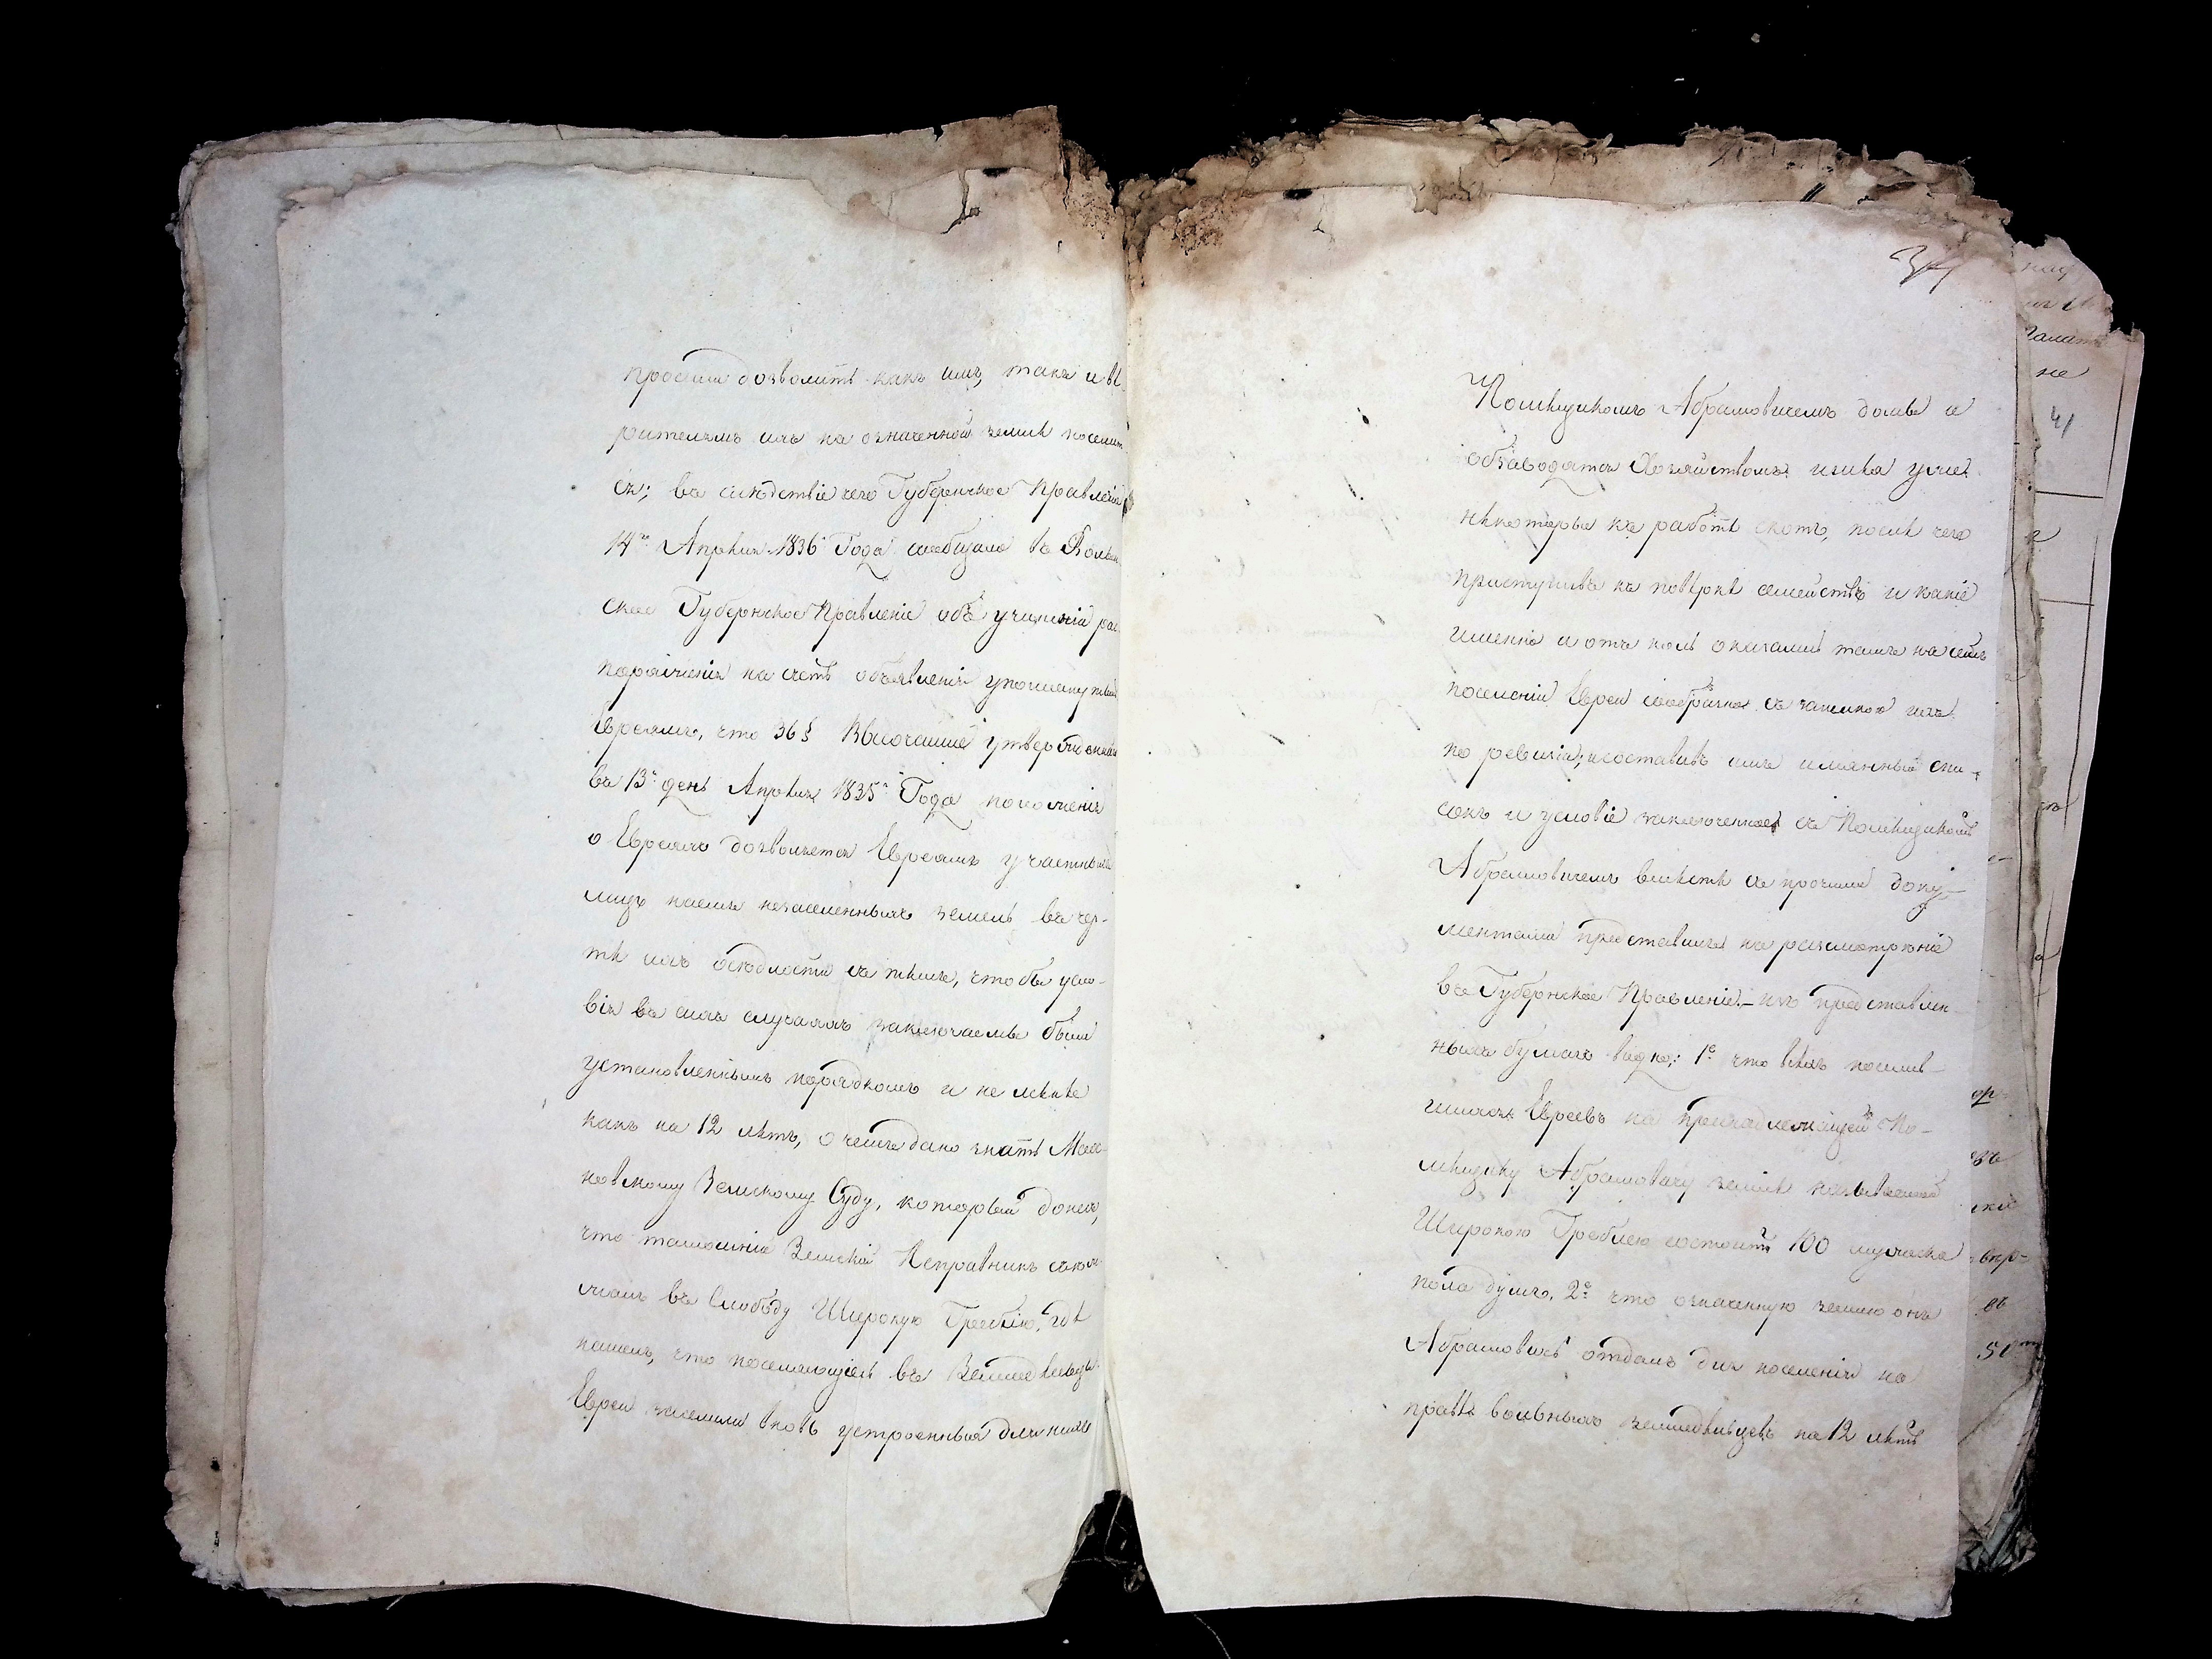 просили дозволить какъ имъ, такъ и вѣ
рителямъ ихъ на означенной землѣ поселит
ся; въ слѣдствіе чего Губернское Правленіе
14го Апрѣля 1836 Года сообщало въ Волын
ское Губернское Правленіе объ учиненіи рас
поряженія на счетъ объявленія упомянутымъ
Евреямъ, что 36 § Высочайше утвержденнаго
въ 13й день Апрѣля 1835го Года положенія
о Евреяхъ дозволяется Евреямъ участковый
наемъ незаселенныхъ земель въ чер-
тѣ ихъ осѣдлости съ тѣмъ, чтобы усло-
вія въ сихъ случаяхъ заключаемы были
установленнымъ порядкомъ и не менѣе
какъ на 12 лѣтъ, о чемъ дано знать Мах-
новскому Земскому Суду, который донесъ,
что тамошній Земскій Исправникъ
въ Слободу Широкую Греблю, гдѣ
нашелъ, что поселяющіеся въ Земледѣльцы
Евреи заселили вновь устроенныя для нихъ
34
Помѣщикомъ Абрамовичемъ домы и
обзаводятся Хозяйствомъ имѣя уже
нѣкоторые къ работѣ скотъ, послѣ чего
приступивъ къ повѣркѣ семействъ и какіе
именно и отъ коль оказались тамъ на семъ
поселеніи Евреи сообразно съ запискою ихъ
по ревизіи, и составивъ имъ имянный спи-
сокъ и условіе заключенное съ Помѣщикомъ
Абрамовичемъ вмѣстѣ съ прочими доку-
ментами представилъ на разсмотрѣніе
въ Губернское Правленіе.- изъ представлен-
ныхъ бумагъ видно: 1е что всѣхъ поселив-
шихся Евреевъ на принадлежащей По-
мѣщику Абрамовичу землѣ называемой
Широкою Греблею состоитъ 100 мужеска
пола душъ, 2е что означенную землю онъ
Абрамовичъ отдалъ для поселенія на
правѣ вольныхъ земледѣльцевъ на 12 лѣтъ